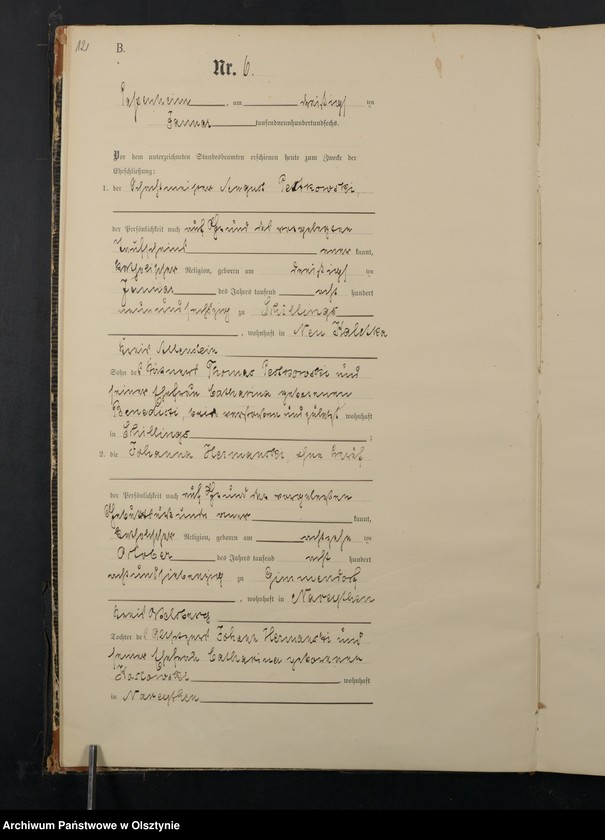 12
B.
Nr. 6.
am dreißigs ten
Januar tausendneunhundertundsechs.
Vor dem unterzeichneten Standesbeamten erschienen heute zum Zwecke der
Eheschließung:
1. der August
der Persönlichkeit nach auf Grund des vorgelegten
Taufscheins aner kannt,
katholischer Religion, geboren am dreißigs ten
Januar des Jahres tausend acht hundert
neunundsechszig zu Schillings
, wohnhaft in Neu Kaletka
Kreis Allenstein
Sohn des Thomas und
seiner Ehefrau Catharina geborenen
, beide verstorben und zuletzt wohnhaft
in Schillings ;
2. die Johanna Hermanski, ohne
der Persönlichkeit nach auf Grund der vorgelegten
Geburtsurkunde aner kannt,
katholischer Religion, geboren am achtzehn ten
Oktober des Jahres tausend acht hundert
achtundsiebenzig zu Gimmendorf
, wohnhaft in Nareythen
Kreis Ortelsburg
Tochter des Johann Hermanski und
seiner Ehefrau Catharina geborenen
wohnhaft
in Nareythen
Archiwum Państwowe w Olsztynie